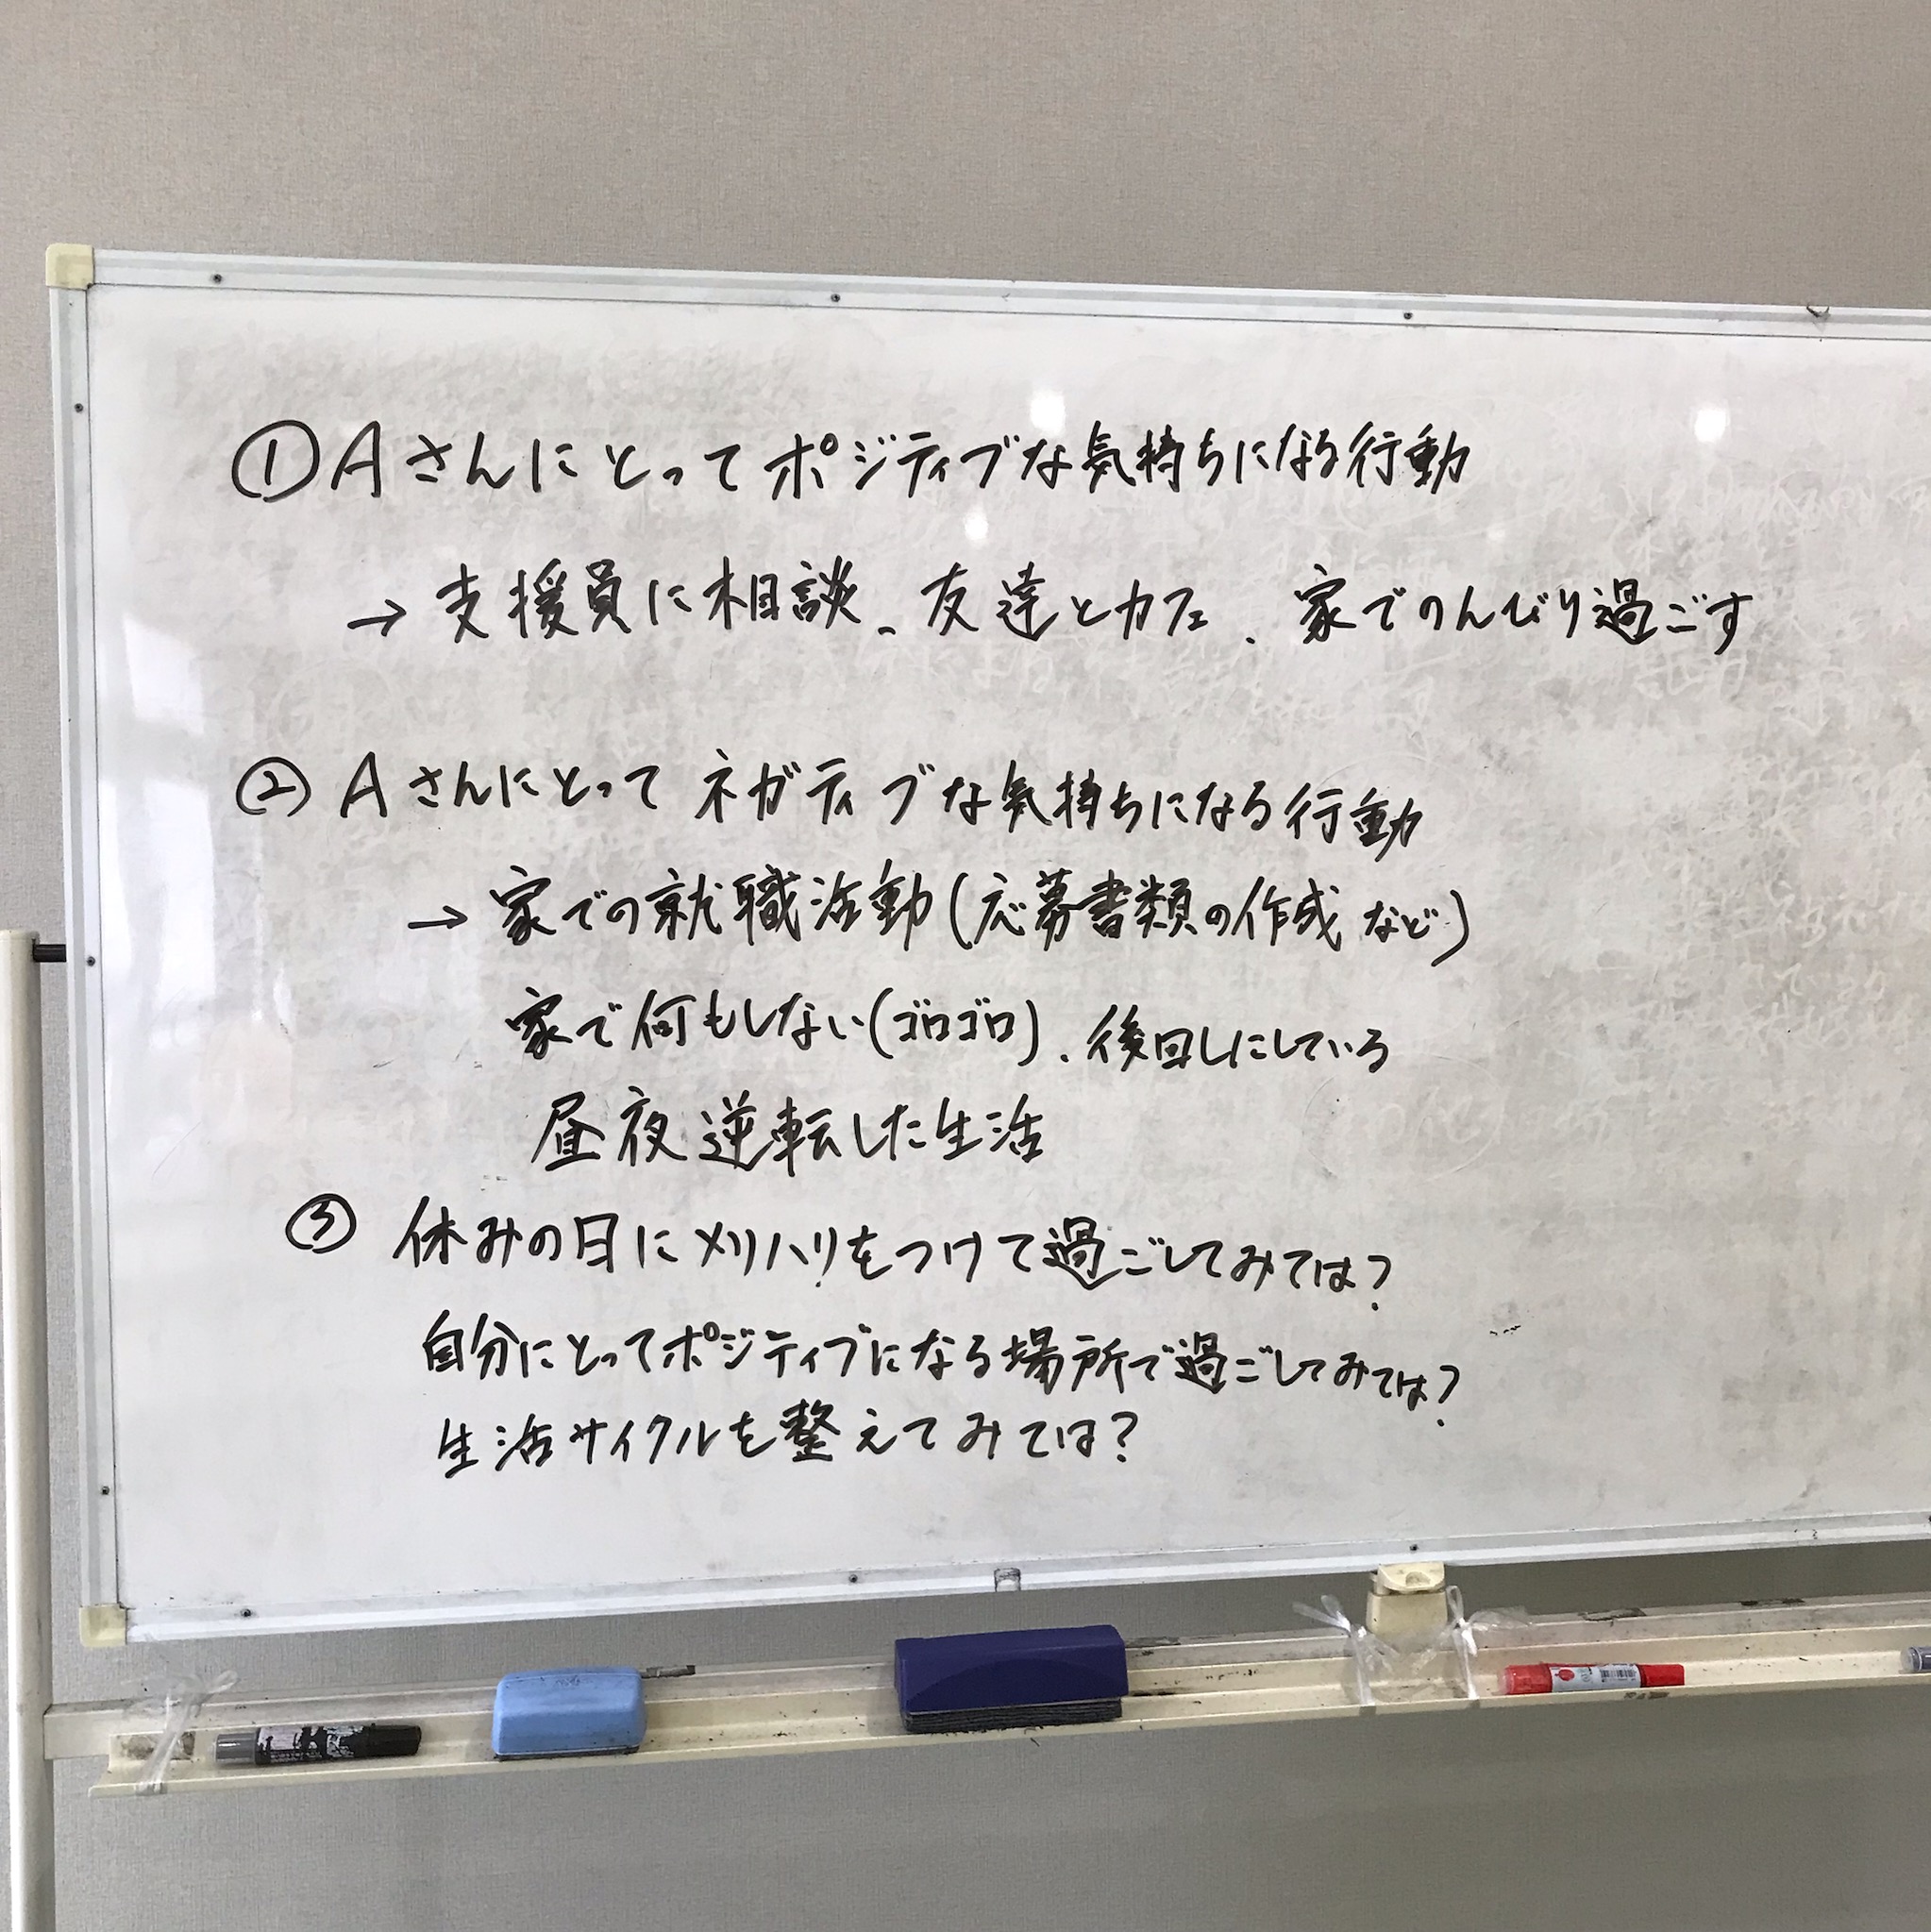 ①Aさんにとってポジティブな気持ちになる行動
→支援員に相談、友達とカフェ、家でのんびり過ごす
②Aさんにとってネガティブな気持ちになる行動
→家での就職活動(応募書類の作成など)
家で何もしない(ゴロゴロ)、後回しにしている
昼夜逆転した生活
③休みの日にメリハリをつけて過ごしてみては?
自分にとってポジティブになる場所で過ごしてみては?
生活サイクルを整えてみては?